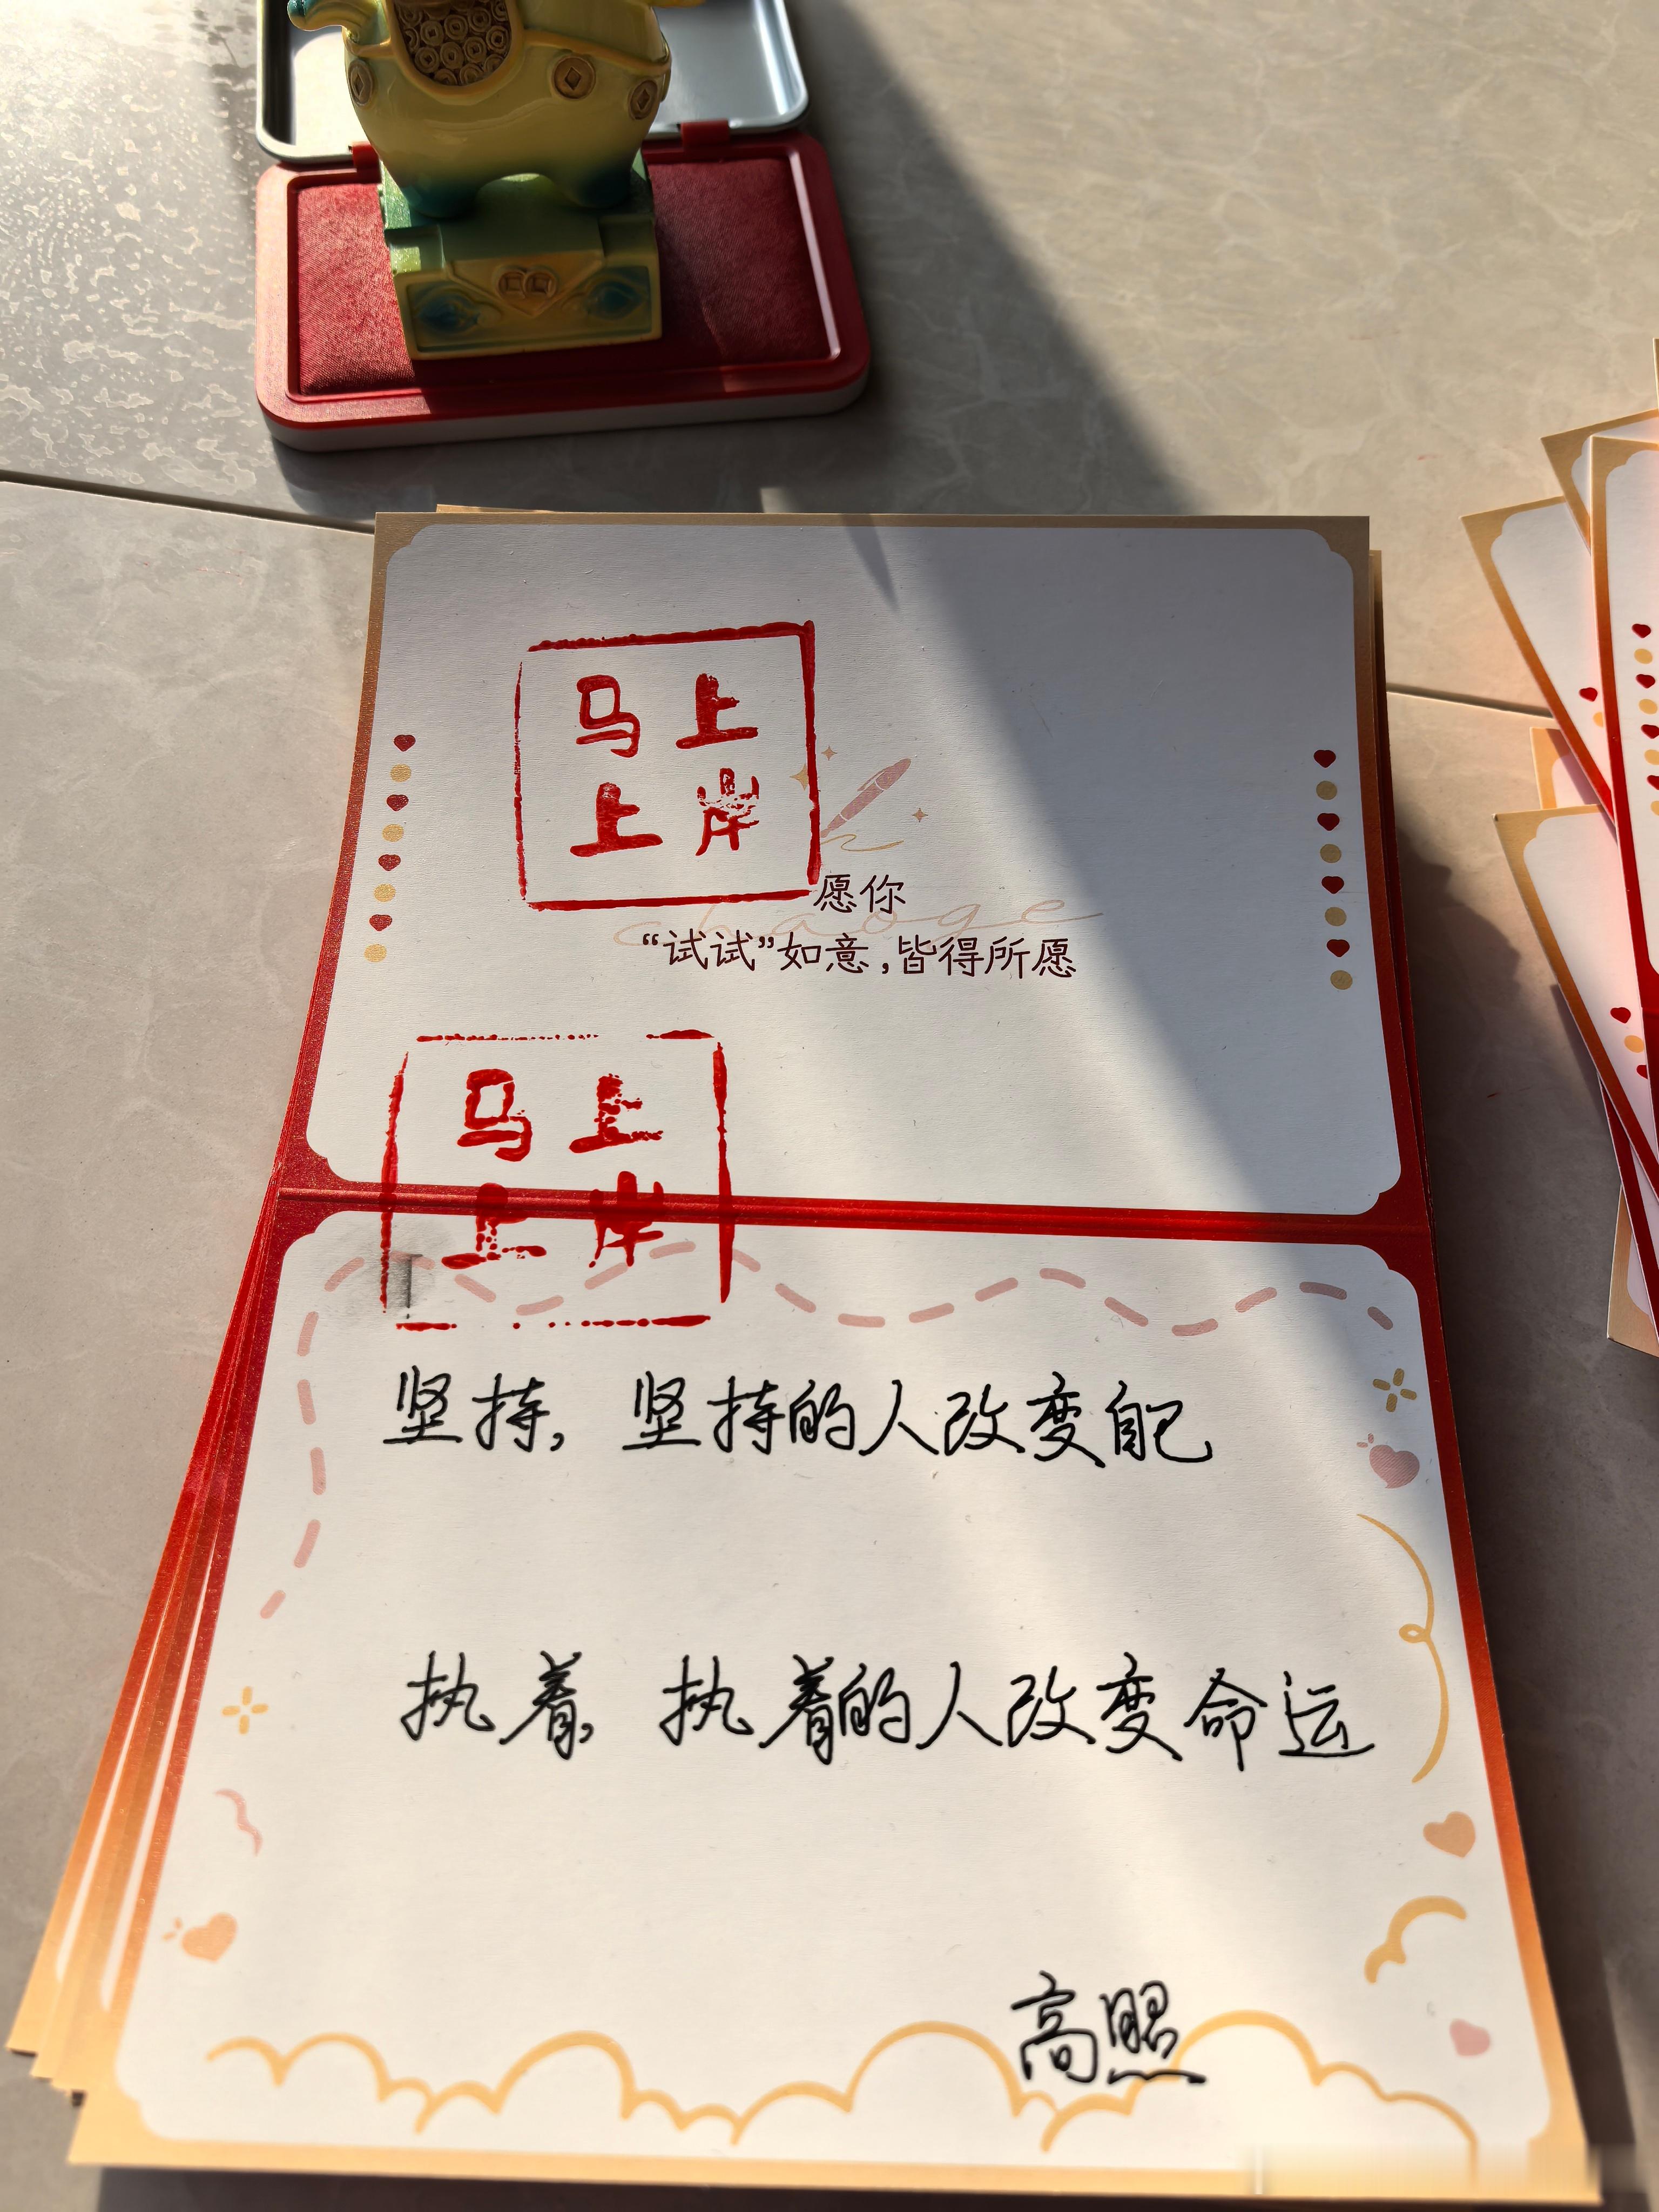 马上
上岸
愿你
chaoge
“试试”如意,皆得所愿
马上
上岸
坚持,坚持的人改变自己
执着,执着的人改变命运
高照